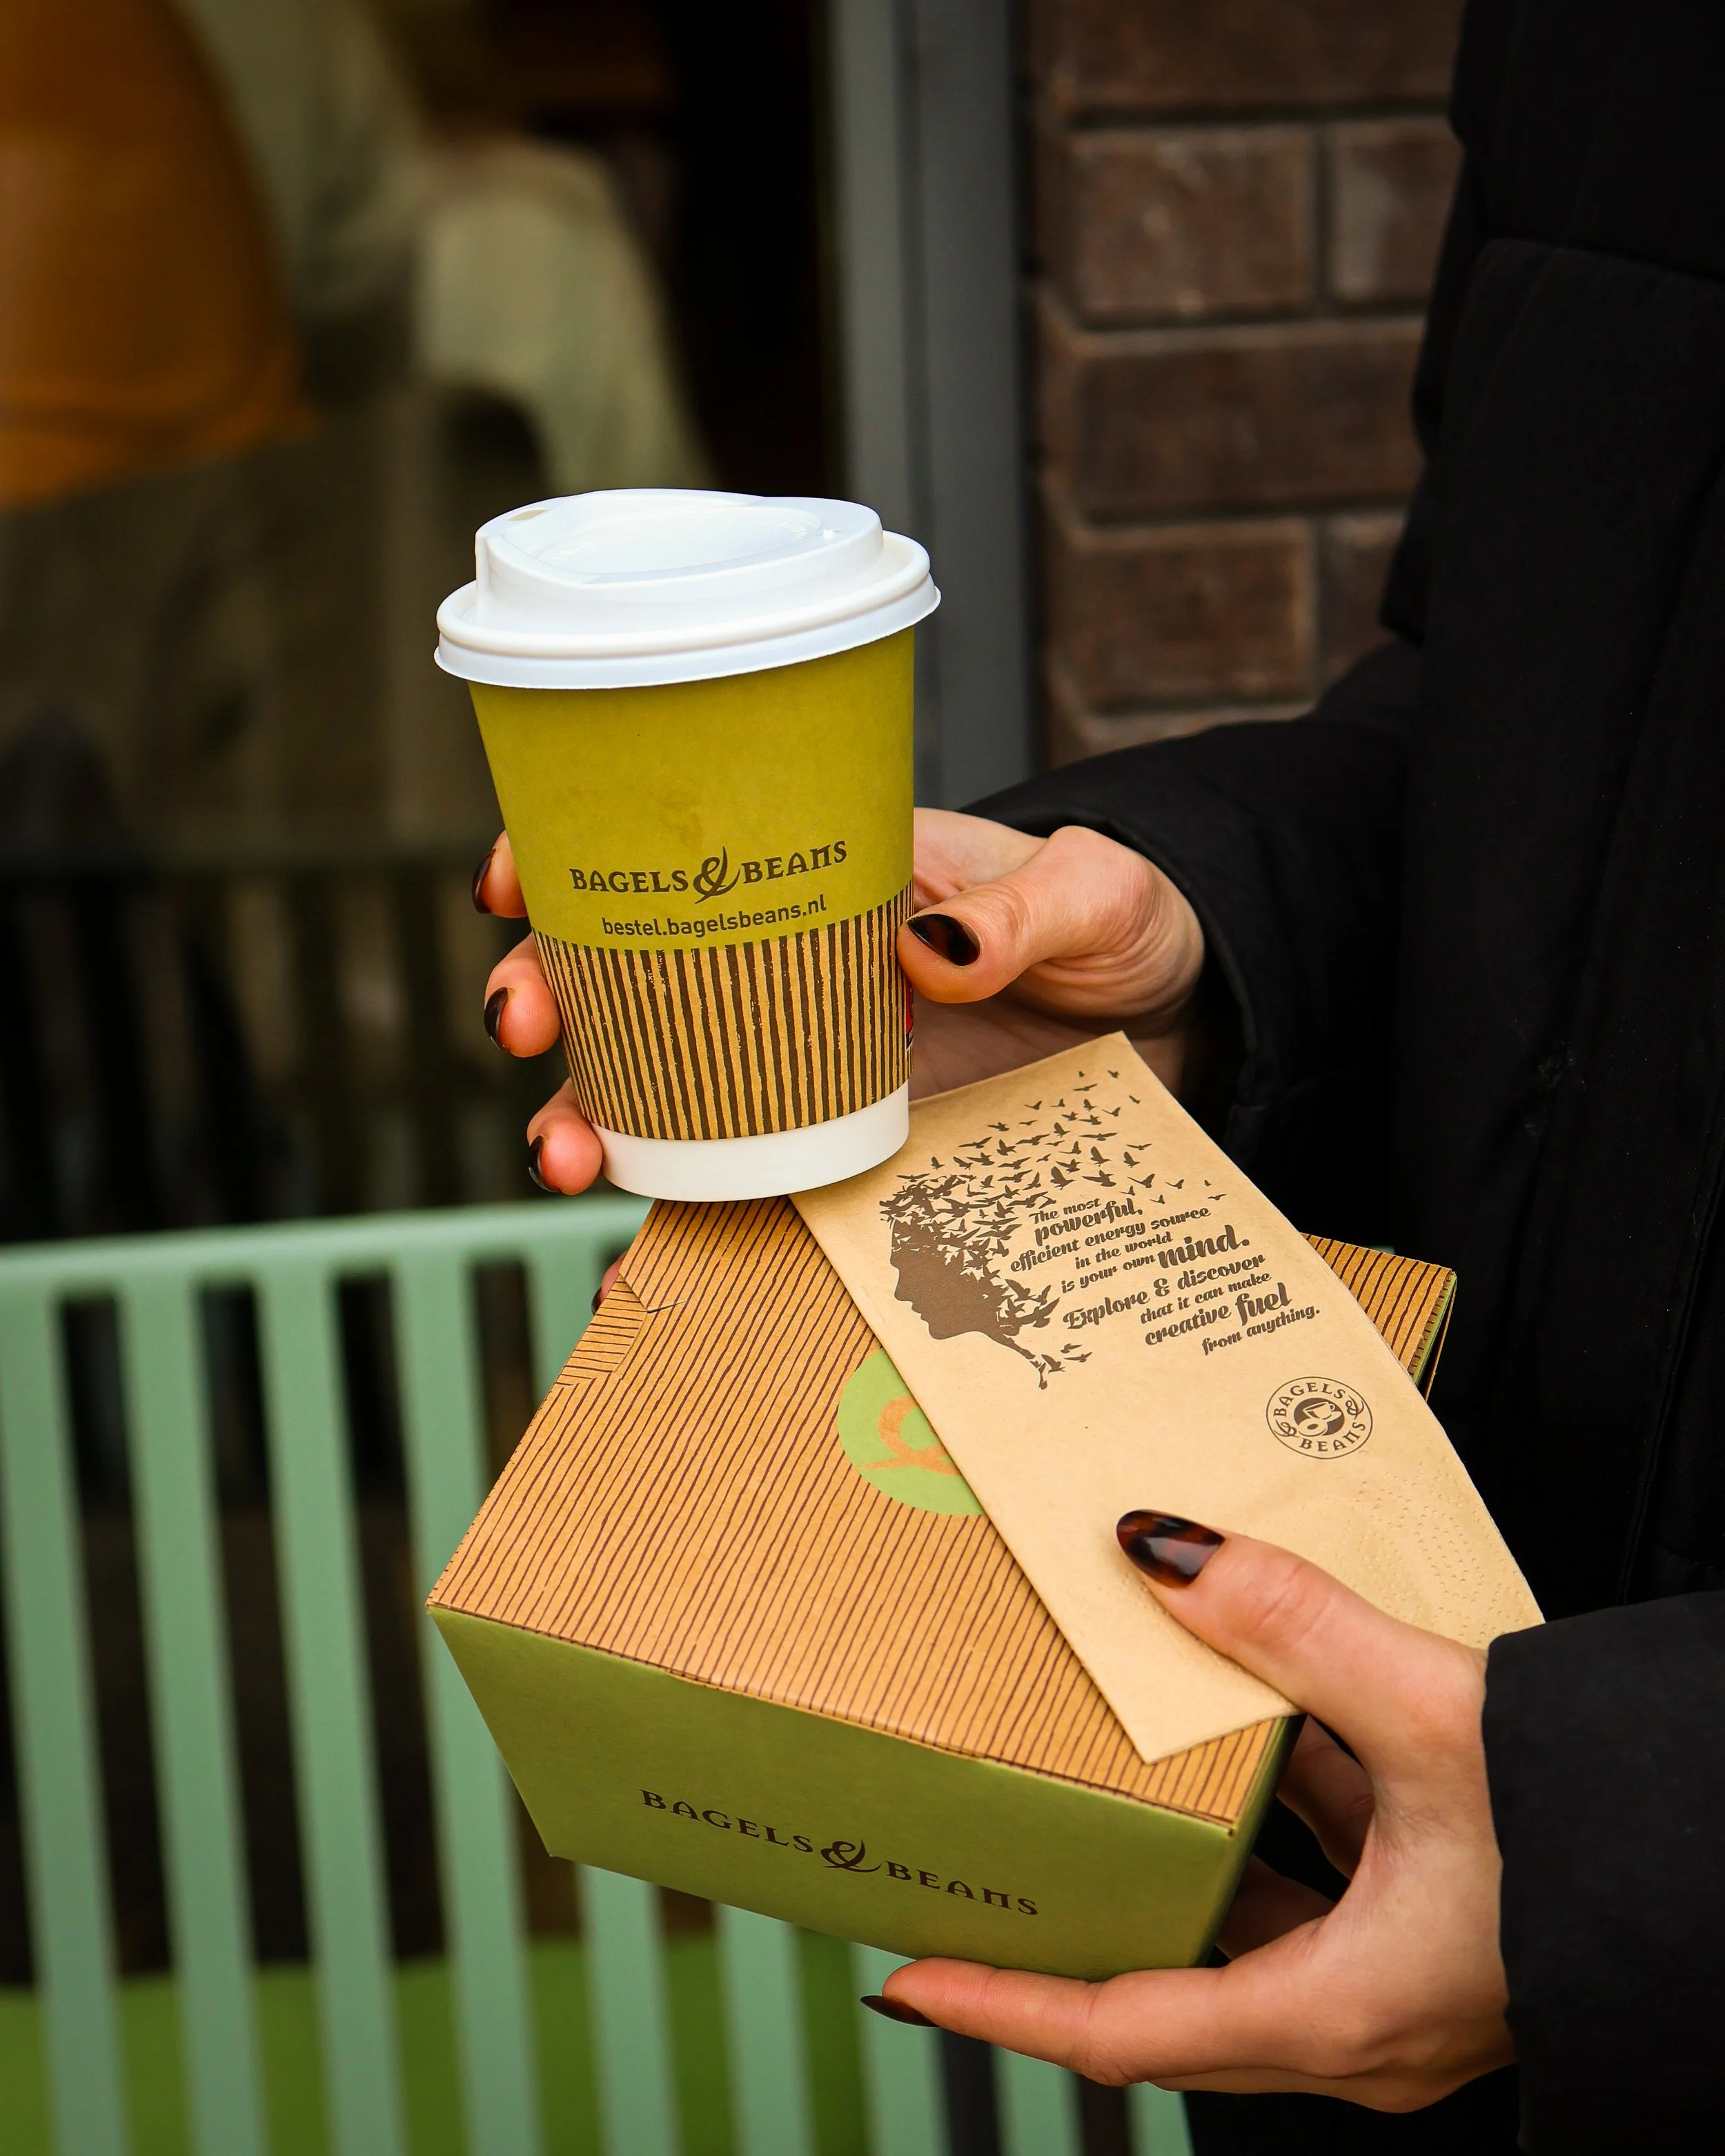 BAGELS & BEANS
bestel.bagelsbeans.nl
The most
powerful,
efficient energy source
in the world
is your own mind.
Explore & discover
that it can make
creative fuel
from anything.
BAGELS &
BEANS &
BAGELS & BEANS